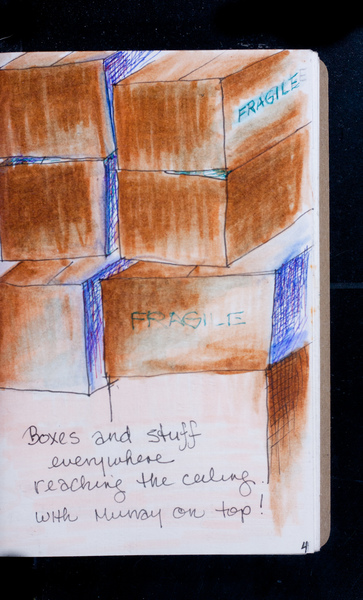 FRAGILE
FRAGILE
Boxes and stuff
everywhere
reaching the ceiling
with Murray on top!
4